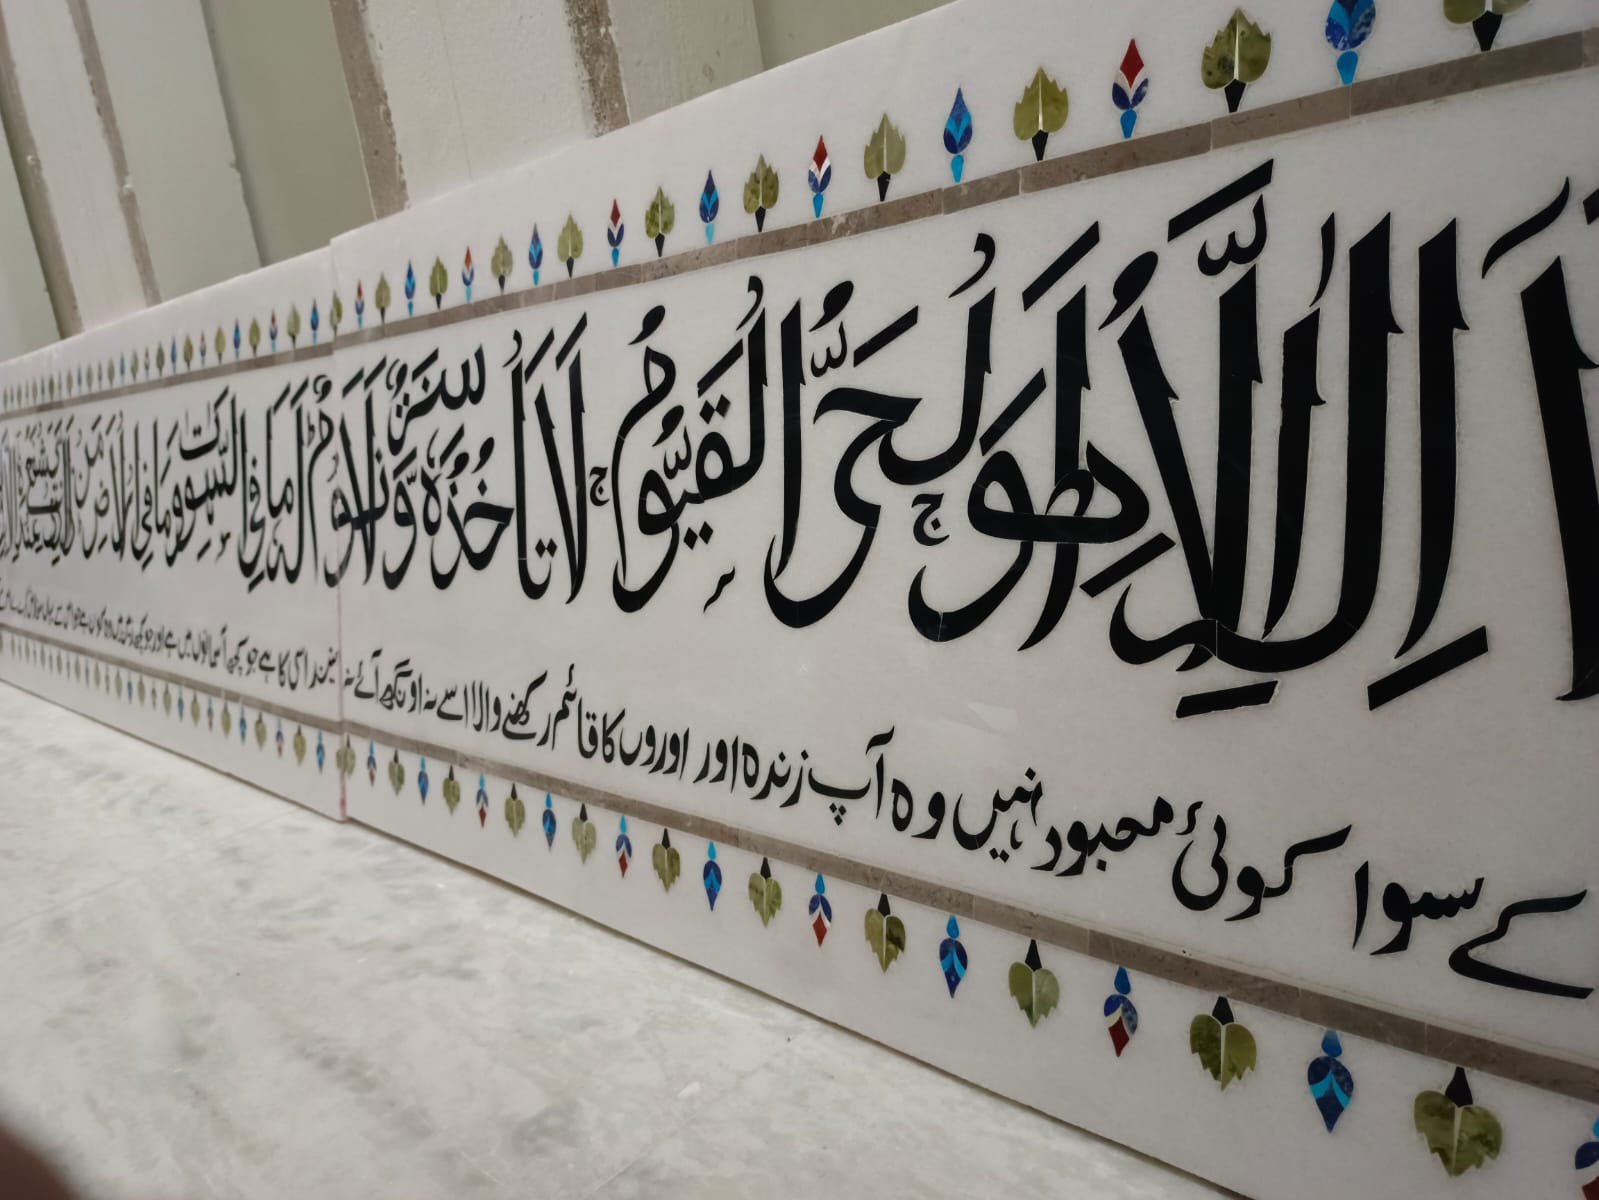 اَللّٰهُ لَاۤ اِلٰهَ اِلَّا هُوَ ۚ اَلْحَیُّ الْقَیُّوْمُ ۚ لَا تَاْخُذُهٗ سِنَةٌ وَّلَا نَوْمٌ ؕ لَهٗ مَا فِی السَّمٰوٰتِ وَمَا فِی الْاَرْضِ ؕ مَنْ ذَا الَّذِیْ یَشْفَعُ عِنْدَهٗۤ
کے سوا کوئی معبود نہیں وہ آپ زندہ اور اوروں کا قائم رکھنے والا اسے نہ اونگھ آئے نہ نیند اسی کا ہے جو کچھ آسمانوں میں ہے اور جو کچھ